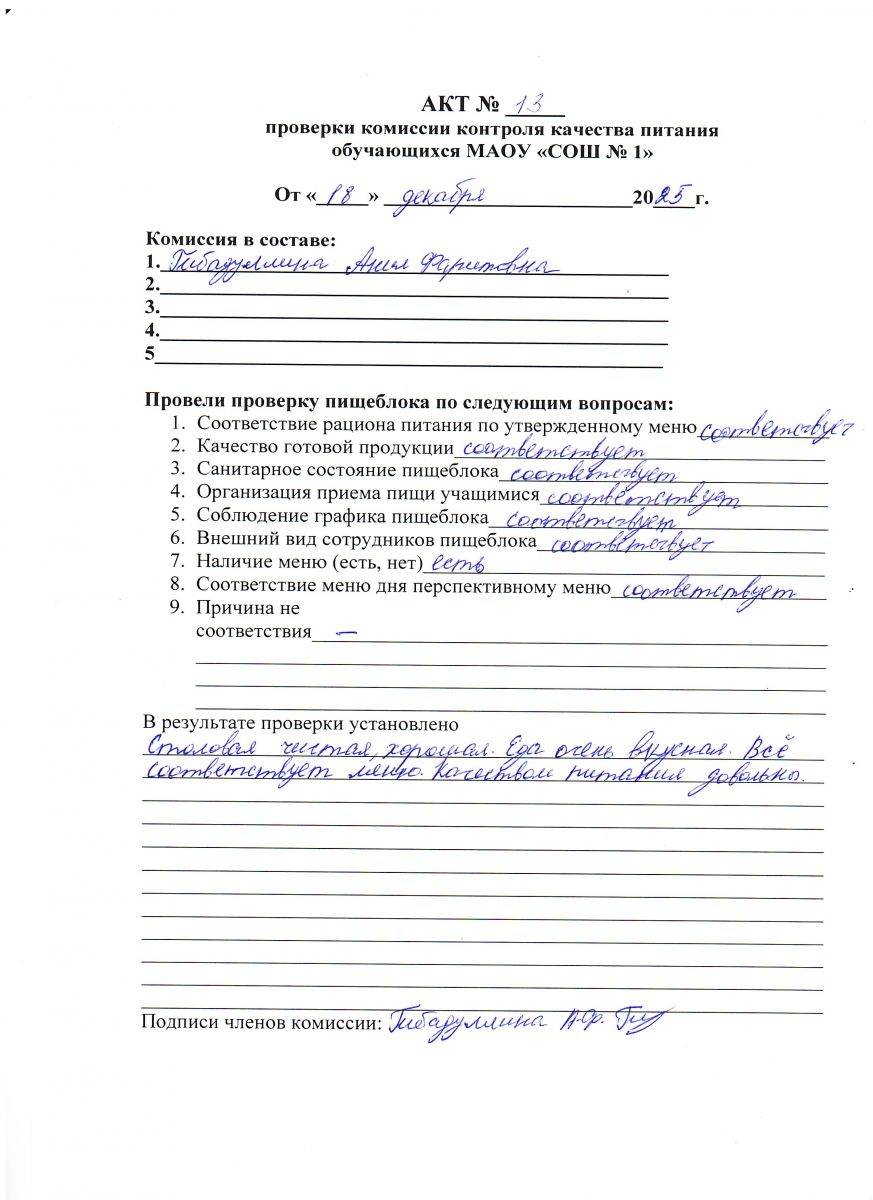 АКТ № 13
проверки комиссии контроля качества питания
обучающихся МАОУ «СОШ № 1»
От « 18 » декабря 2025 г.
Комиссия в составе:
1. Гибадуллина Фаритовна
2.
3.
4.
5
Провели проверку пищеблока по следующим вопросам:
1. Соответствие рациона питания по утвержденному меню соответствует
2. Качество готовой продукции соответствует
3. Санитарное состояние пищеблока соответствует
4. Организация приема пищи учащимися соответствует
5. Соблюдение графика пищеблока соответствует
6. Внешний вид сотрудников пищеблока соответствует
7. Наличие меню (есть, нет) есть
8. Соответствие меню дня перспективному меню соответствует
9. Причина не
соответствия —
В результате проверки установлено
Столовая чистая, хорошая. Еда очень вкусная. Всё
соответствует меню. Качеством питания довольны.
Подписи членов комиссии: Гибадуллина А.Ф.